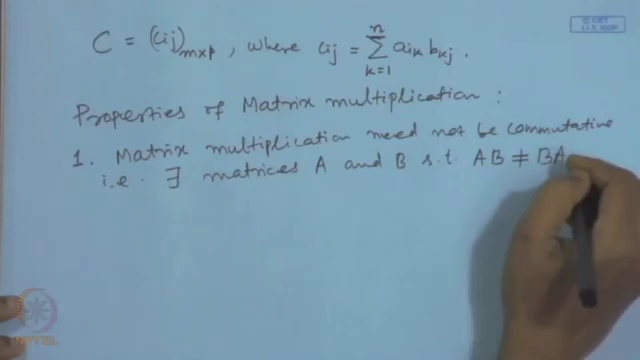 C = (cij)m×p , where cij = n∑k=1 aik bkj .
Properties of Matrix multiplication :
1. Matrix multiplication need not be commutative
i.e. ∃ matrices A and B s.t. AB ≠ BA
© CET
I.I.T. KGP
NPTEL